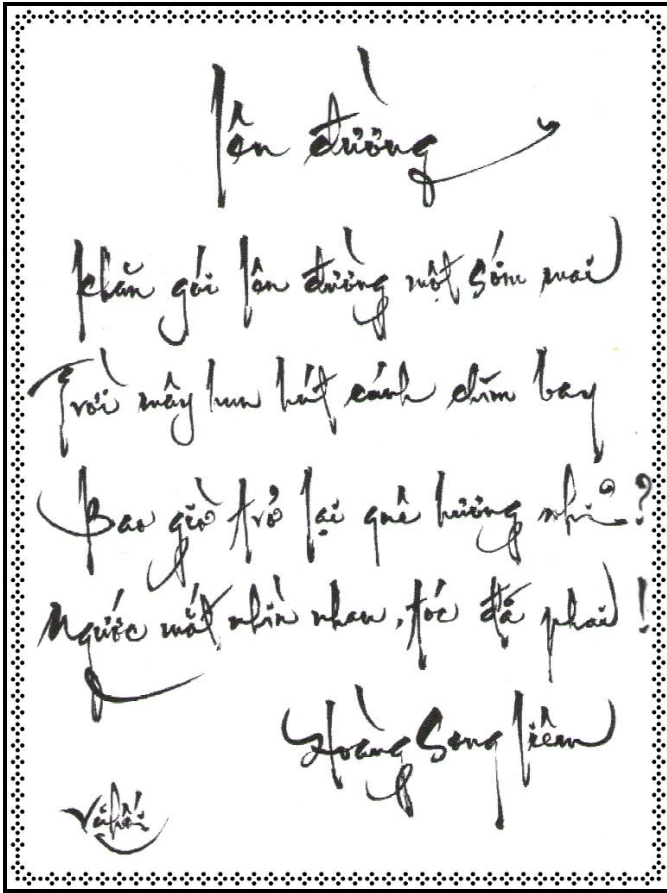 Lên đường
Khăn gói lên đường một sớm mai
Trời mây hun hút cánh chim bay
Bao giờ trở lại quê hương nhỉ?
Ngước mắt nhìn nhau, tóc đã phai!
Hoàng Song Liêm